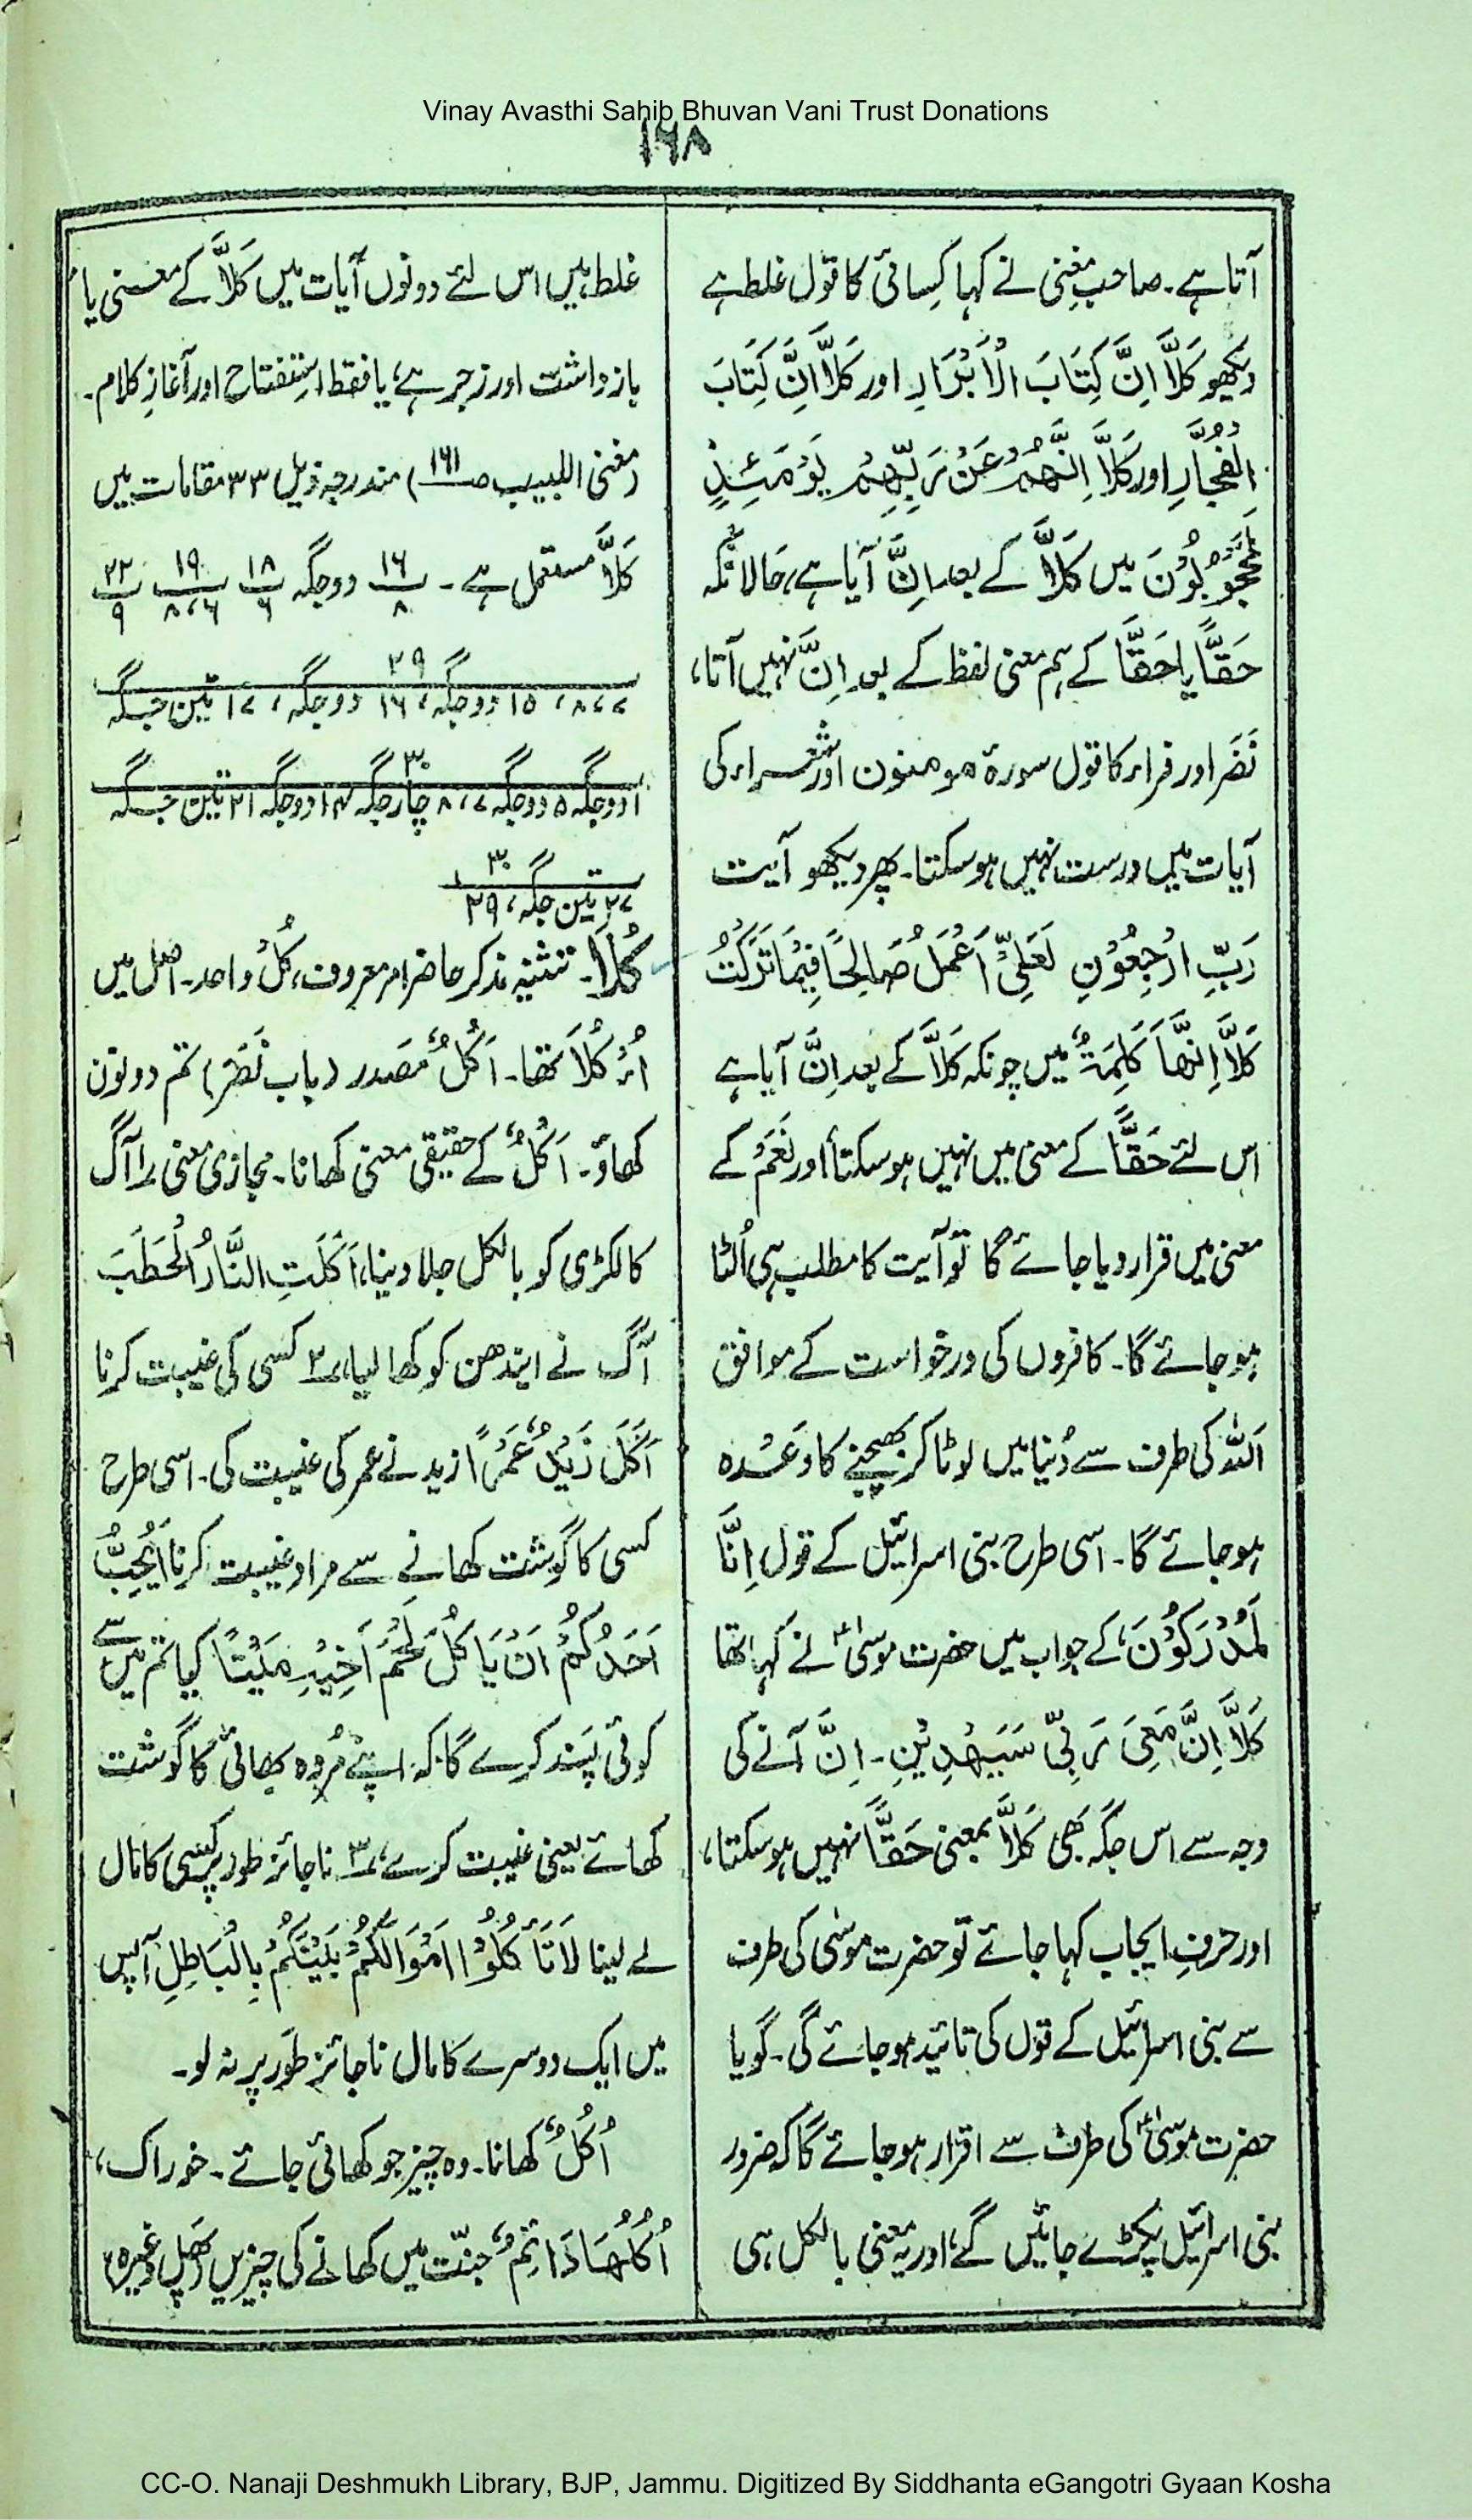 Vinay Avasthi Sahib Bhuvan Vani Trust Donations
۱۶۸
آتا ہے۔ صاحب مغنی نے کہا کِسائی کا قول غلط ہے
دیکھو کَلَّا اِنَّ کِتَابَ الْاَبْرَارِ اور کَلَّا اِنَّ کِتَابَ
الْفُجَّارِ اور کَلَّا اِنَّهُمْ عَنْ رَّبِّهِمْ یَوْمَئِذٍ
لَّمَحْجُوْبُوْنَ میں کَلَّا کے بعد اِنَّ آیا ہے، حالانکہ
حَقًّا یا حَقًّا کے ہم معنی لفظ کے بعد اِنَّ نہیں آتا،
نَضَر اور فراء کا قول سورۃ مومنون اور شعراء کی
آیات میں درست نہیں ہوسکتا۔ پھر دیکھو آیت
رَبِّ ارْجِعُوْنِ لَعَلِّیْ اَعْمَلُ صَالِحًا فِیْمَا تَرَکْتُ
کَلَّا اِنَّهَا کَلِمَةٌ میں چونکہ کَلَّا کے بعد اِنَّ آیا ہے
اس لئے حَقًّا کے معنی میں نہیں ہوسکتا اور نَعَمْ کے
معنی میں قرار دیا جائے گا تو آیت کا مطلب ہی اُلٹا
ہوجائے گا۔ کافروں کی درخواست کے موافق
اَللہ کی طرف سے دُنیا میں لوٹا کر بھیجنے کا وَعْدہ
ہوجائے گا۔ اسی طرح بنی اسرائیل کے قول اِنَّا
لَمُدْرَکُوْنَ، کے جواب میں حضرت موسیٰؑ نے کہا تھا
کَلَّا اِنَّ مَعِیَ رَبِّیْ سَیَهْدِیْنِ۔ اِنَّ آنے کی
وجہ سے اس جگہ بھی کَلَّا بمعنی حَقًّا نہیں ہوسکتا،
اور حرفِ ایجاب کہا جائے تو حضرت موسٰی کی طرف
سے بنی اسرائیل کے قول کی تائید ہوجائے گی۔ گویا
حضرت موسیٰؑ کی طرف سے اقرار ہوجائے گا کہ ضرور
بنی اسرائیل پکڑے جائیں گے، اور یہ معنی بالکل ہی
غلط ہیں اس لئے دونوں آیات میں کَلَّا کے معنی یا
بازداشت اور زجر ہے، یا فقط اِستِفتاح اور آغازِ کلام۔
(مغنی اللبیب صـ۱۶۱) مندرجہ ذیل ۳۳ مقامات میں
کَلَّا مستعمل ہے۔ ۱۶/۸ دو جگہ ۱۸/۶ ۱۹/۸،۶ ۲۲/۹
۲۹/۷، ۸، ۱۵ دوجگہ، ۱۶ دوجگہ، ۱۷ تین جگہ
۳۰/۱ دوجگہ ۵ دوجگہ ۷، ۸ چار جگہ ۱۴ دوجگہ ۲۱ تین جگہ
۳۰/۲۷ تین جگہ، ۲۹
کُلَا۔ تثنیہ مذکر حاضر امر معروف، کُلْ واحد۔ اصل میں
اُؤْکُلَا تھا۔ اَکْلٌ مَصدر (باب نَصَرَ) تم دونوں
کھاؤ۔ اَکْلٌ کے حقیقی معنی کھانا۔ مجازی معنی ۱ آگ
کا لکڑی کو بالکل جلا دینا، اَکَلَتِ النَّارُ الْحَطَبَ
آگ نے ایندھن کو کھا لیا، ۲ کسی کی غیبت کرنا
اَکَلَ زَیْدٌ عَمْرًا زید نے عمر کی غیبت کی۔ اسی طرح
کسی کا گوشت کھانے سے مراد غیبت کرنا اَیُحِبُّ
اَحَدُکُمْ اَنْ یَّاْکُلَ لَحْمَ اَخِیْهِ مَیْتًا کیا تم میں سے
کوئی پَسند کرے گا کہ اپنے مُردہ بھائی کا گوشت
کھائے یعنی غیبت کرے، ۳ ناجائز طور پر کسی کا مال
لے لینا لَا تَاْکُلُوْا اَمْوَالَکُمْ بَیْنَکُمْ بِالْبَاطِلِ آپس
میں ایک دوسرے کا مال ناجائز طَور پر نہ لو۔
اُکُلٌ کھانا۔ وہ چیز جو کھائی جائے۔ خوراک،
اُکُلُهَا دَائِمٌ جنّت میں کھانے کی چیزیں (پَھل وغیرہ)
CC-O. Nanaji Deshmukh Library, BJP, Jammu. Digitized By Siddhanta eGangotri Gyaan Kosha